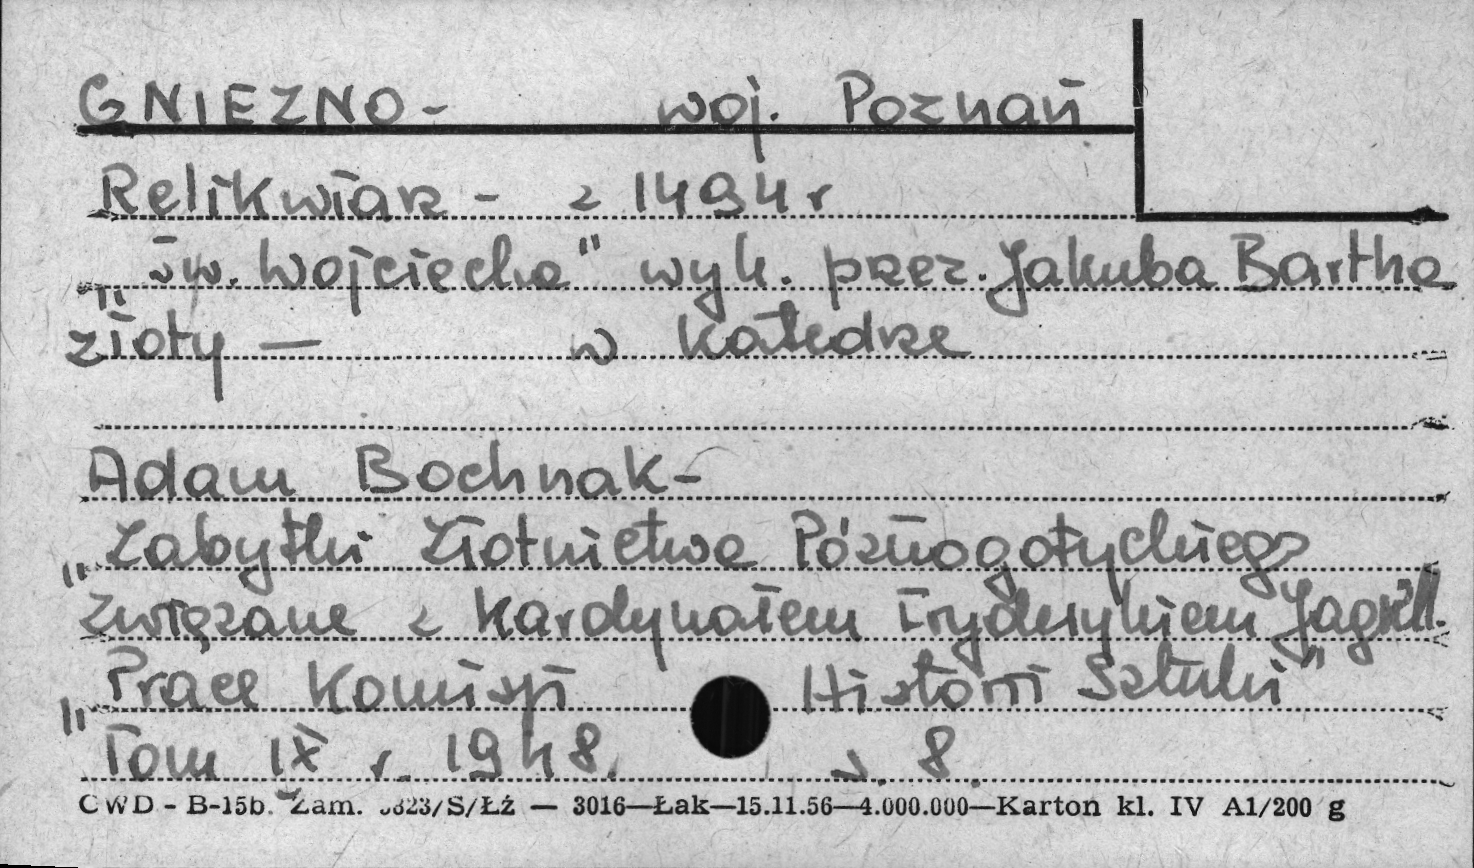 GNIEZNO - woj. Poznań
Relikwiarz - z 1494 r
„św. Wojciecha" wyk. przez. Jakuba Bartha
złoty — w Katedrze
Adam Bochnak -
„Zabytki Złotnictwa Późnogotyckiego
związane z Kardynałem Fryderykiem Jagiełł.
„Prace Komisji Historii Sztuki"
Tom IX r. 1948. s. 8.
CWD - B-15b. Zam. 3823/S/ŁŻ — 3016—Łak—15.11.56—4.000.000—Karton kl. IV A1/200 g